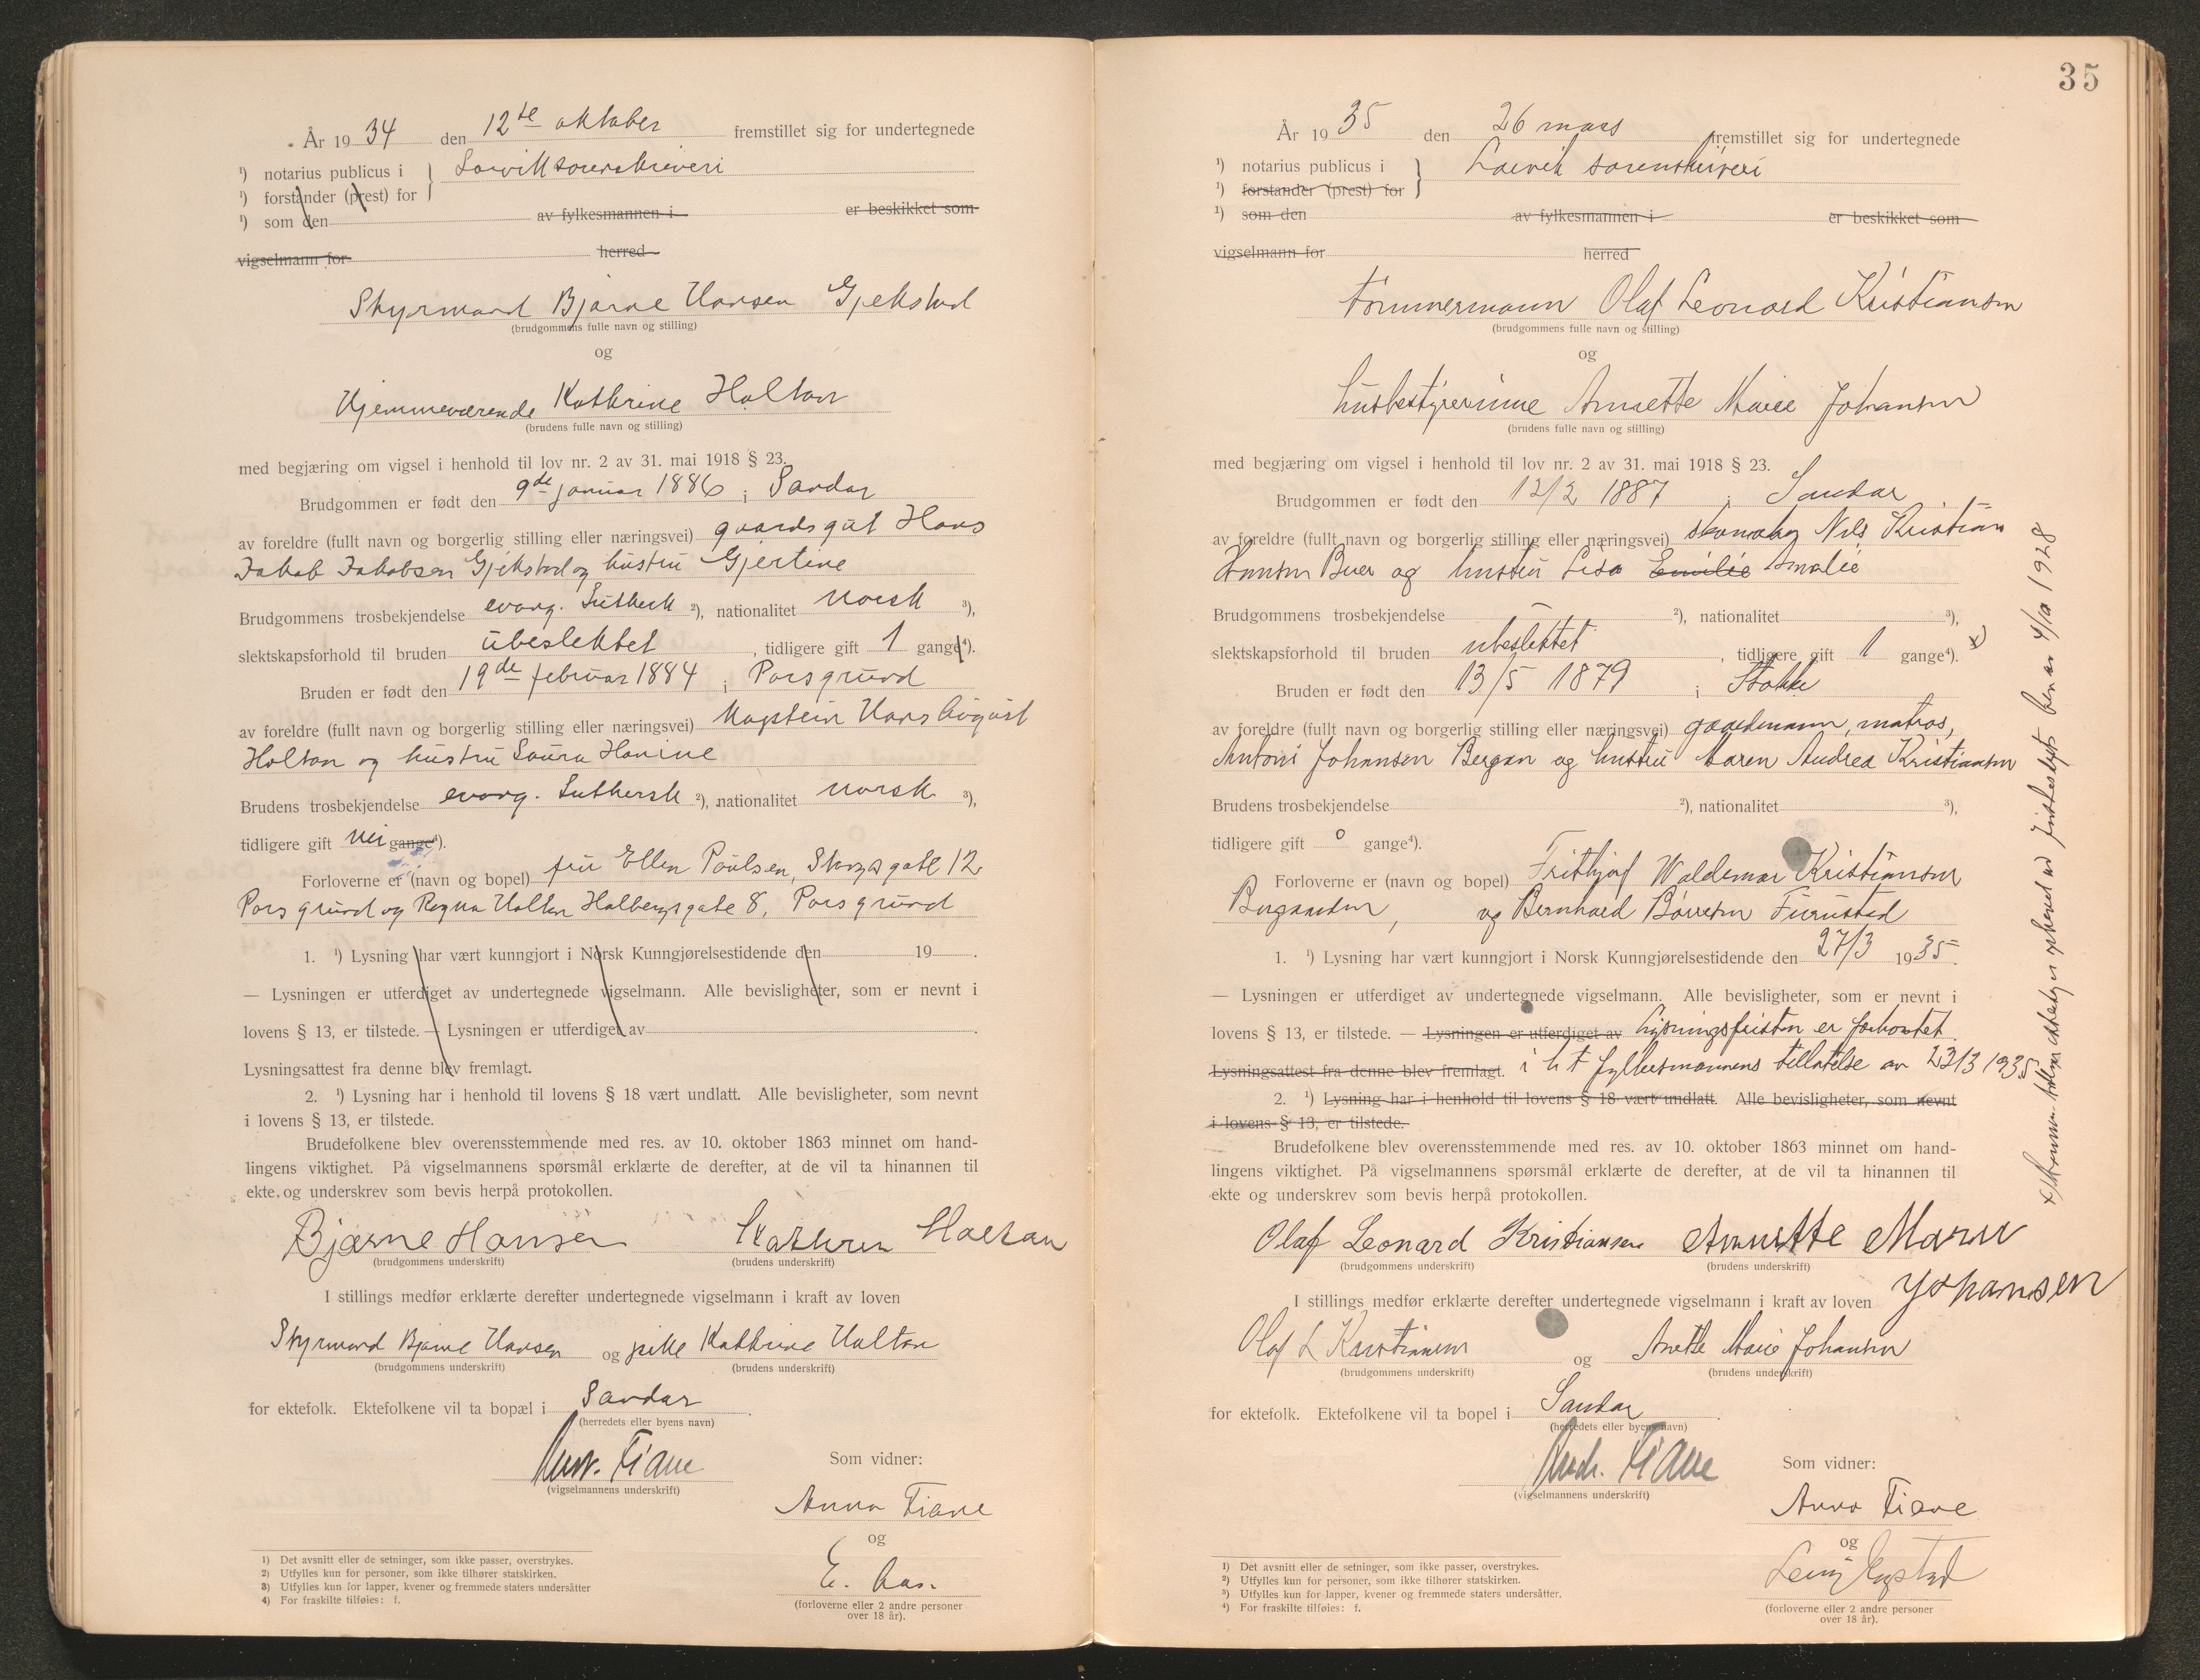 År 1934 den 12te oktober fremstillet sig for undertegnede
1) notarius publicus i } Larvik sorenskriveri
1) forstander (prest) for
1) som den av fylkesmannen i er beskikket som
vigselmann for herred
Styrmand Bjarne Hansen Gjekstad
(brudgommens fulle navn og stilling)
og
Hjemmeværende Kathrine Holtan
(brudens fulle navn og stilling)
med begjæring om vigsel i henhold til lov nr. 2 av 31. mai 1918 § 23.
Brudgommen er født den 9de januar 1886 i Sandar
av foreldre (fullt navn og borgerlig stilling eller næringsvei) gaardsgut Hans
Jakob Jakobsen Gjekstad og hustru Gjertine
Brudgommens trosbekjendelse evang. Luthersk 2), nationalitet norsk 3),
slektskapsforhold til bruden ubeslektet, tidligere gift 1 gange4).
Bruden er født den 19de februar 1884 i Porsgrund
av foreldre (fullt navn og borgerlig stilling eller næringsvei) Kaptein Hans August
Holtan og hustru Laura Hanine
Brudens trosbekjendelse evang. Luthersk 2), nationalitet norsk 3),
tidligere gift nei gange4).
Forloverne er (navn og bopel) fru Ellen Poulsen, Storgt gate 12
Porsgrund og Ragna Holtan Holbergsgate 8, Porsgrund
1. 1) Lysning har vært kunngjort i Norsk Kunngjørelsestidende den 19 .
— Lysningen er utferdiget av undertegnede vigselmann. Alle bevisligheter, som er nevnt i
lovens § 13, er tilstede. — Lysningen er utferdiget av .
Lysningsattest fra denne blev fremlagt.
2. 1) Lysning har i henhold til lovens § 18 vært undlatt. Alle bevisligheter, som nevnt
i lovens § 13, er tilstede.
Brudefolkene blev overensstemmende med res. av 10. oktober 1863 minnet om hand-
lingens viktighet. På vigselmannens spørsmål erklærte de derefter, at de vil ta hinannen til
ekte og underskrev som bevis herpå protokollen.
Bjarne Hansen Kathrin Holtan
(brudgommens underskrift) (brudens underskrift)
I stillings medfør erklærte derefter undertegnede vigselmann i kraft av loven
Styrmand Bjarne Hansen og pike Kathrine Holtan
(brudgommens underskrift) (brudens underskrift)
for ektefolk. Ektefolkene vil ta bopæl i Sandar.
(herredets eller byens navn)
Andr. Fiane Som vidner:
(vigselmannens underskrift)
Anna Fiane
og
E. Aas.
(forloverne eller 2 andre personer
over 18 år).
1) Det avsnitt eller de setninger, som ikke passer, overstrykes.
2) Utfylles kun for personer, som ikke tilhører statskirken.
3) Utfylles kun for lapper, kvener og fremmede staters undersåtter
4) For fraskilte tilføies: f.
35
År 1935 den 26 mars fremstillet sig for undertegnede
1) notarius publicus i } Larvik sorenskriveri
1) forstander (prest) for
1) som den av fylkesmannen i er beskikket som
vigselmann for herred
tömmermann Olaf Leonard Kristiansen
(brudgommens fulle navn og stilling)
og
husbestyrerinne Annette Marie Johansen
(brudens fulle navn og stilling)
med begjæring om vigsel i henhold til lov nr. 2 av 31. mai 1918 § 23.
Brudgommen er født den 12/2 1887 i Sandar
av foreldre (fullt navn og borgerlig stilling eller næringsvei) skomaker Nils Kristian
Hansen Buer og hustru Lisa Emilie Amalie
Brudgommens trosbekjendelse 2), nationalitet 3),
slektskapsforhold til bruden ubeslektet, tidligere gift 1 gange4). x)
Bruden er født den 13/5 1879 i Stokke
av foreldre (fullt navn og borgerlig stilling eller næringsvei) gaardmann, matros,
Antoni Johansen Bergan og hustru Maren Andrea Kristiansen
Brudens trosbekjendelse 2), nationalitet 3),
tidligere gift 0 gange4).
Forloverne er (navn og bopel) Frithjof Waldemar Kristiansen
og Bernhard Børresen Furustad
1. 1) Lysning har vært kunngjort i Norsk Kunngjørelsestidende den 27/3 1935.
— Lysningen er utferdiget av undertegnede vigselmann. Alle bevisligheter, som er nevnt i
lovens § 13, er tilstede. — Lysningen er utferdiget av Lysningsfristen er forkortet
Lysningsattest fra denne blev fremlagt. i h t fylkesmannens tillatelse av 23/3 1935
2. 1) Lysning har i henhold til lovens § 18 vært undlatt. Alle bevisligheter, som nevnt
i lovens § 13, er tilstede.
Brudefolkene blev overensstemmende med res. av 10. oktober 1863 minnet om hand-
lingens viktighet. På vigselmannens spørsmål erklærte de derefter, at de vil ta hinannen til
ekte og underskrev som bevis herpå protokollen.
Olaf Leonard Kristiansen Annette Marie
(brudgommens underskrift) (brudens underskrift)
Johansen
I stillings medfør erklærte derefter undertegnede vigselmann i kraft av loven
Olaf L Kristiansen og Anette Marie Johansen
(brudgommens underskrift) (brudens underskrift)
for ektefolk. Ektefolkene vil ta bopel i Sandar.
(herredets eller byens navn)
Andr. Fiane Som vidner:
(vigselmannens underskrift)
Anna Fiane
og
(forloverne eller 2 andre personer
over 18 år).
1) Det avsnitt eller de setninger, som ikke passer, overstrykes.
2) Utfylles kun for personer, som ikke tilhører statskirken.
3) Utfylles kun for lapper, kvener og fremmede staters undersåtter.
4) For fraskilte tilføies: f.
x) tidligere ekteskap er ophevet ved 4/10 1928